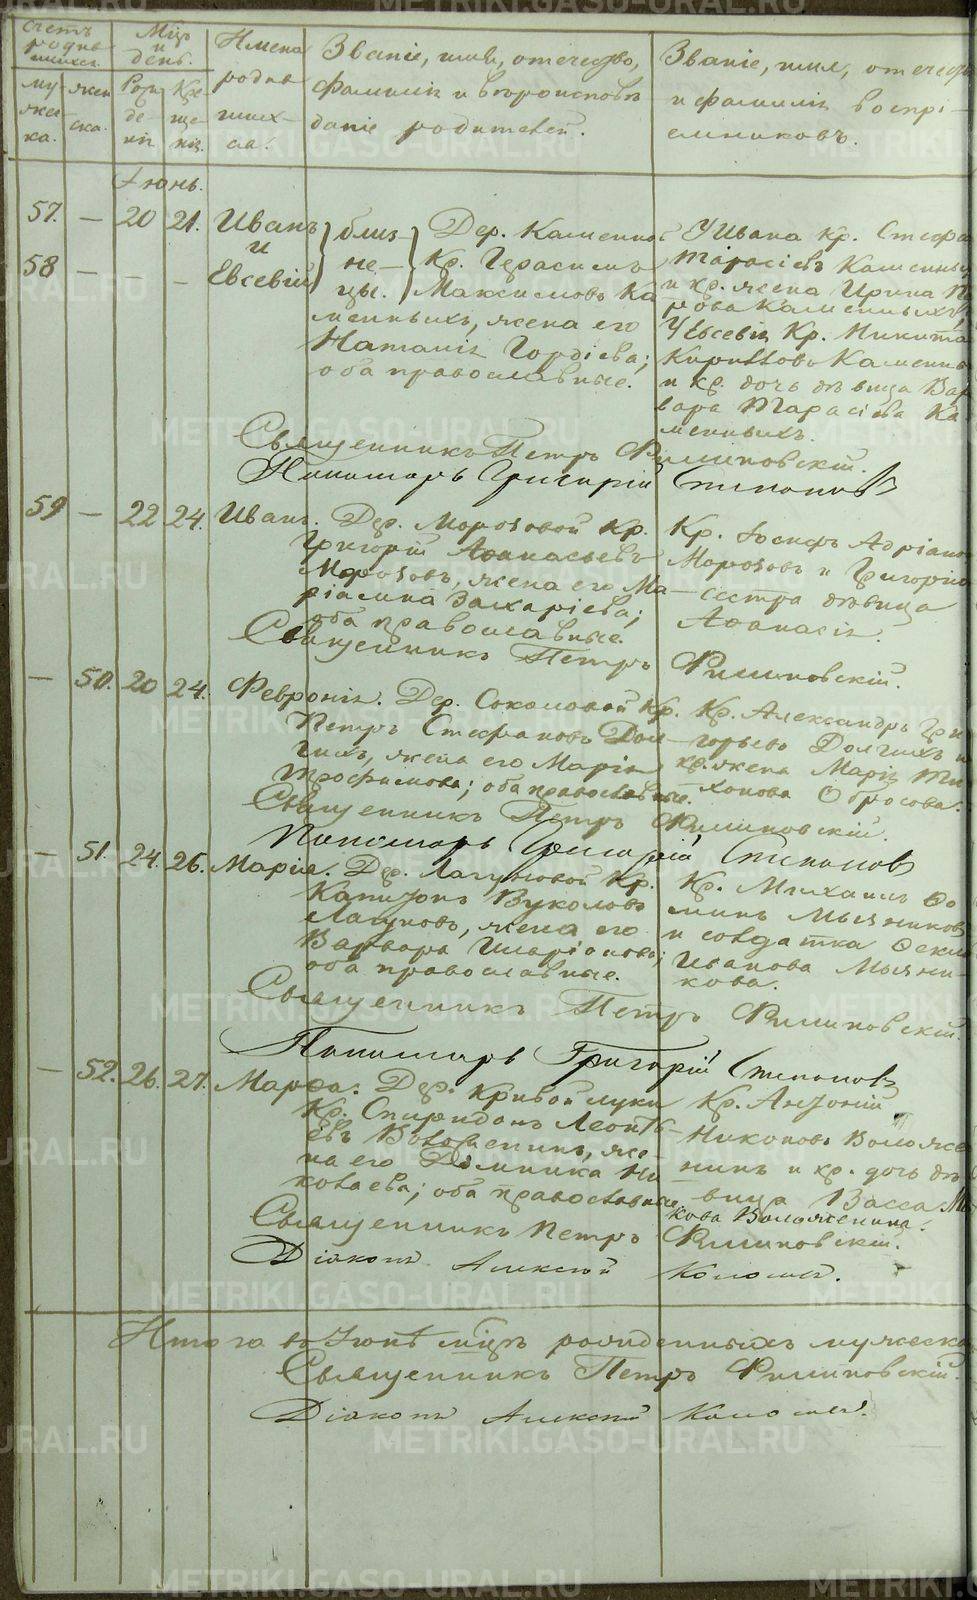 Счетъ родив-шихся.
Мцъ и день.
Имена родив-шихся.
Званіе, имя, отчество, фамилія и вѣроисповѣ-даніе родителей.
Званіе, имя, отчество и фамилія воспрі-емниковъ.
му-жес-ка.
жен-ска.
Рож-де-нія.
Кре-ще-нія.
Іюнь.
57. — 20 21. Иванъ
и
58 — — — Евсевій
близ-
не-
цы.
Дер. Каменной
Кр. Герасимъ
Максимовъ Ка-
менныхъ, жена его
Наталія Гордіева;
оба православные.
У Ивана кр. Стефа
Тарасіевъ Каменны
и кр. жена Ирина П
рова Каменныхъ,
У Евсевія Кр. Никита
Кирилловъ Каменны
и кр. дочь дѣвица Вар
вара Тарасіева Ка
менныхъ.
Священникъ Петръ Филиповскій.
Пономарь Григорій Степановъ
59 — 22 24. Иванъ. Дер. Морозовой Кр.
Григорій Аѳанасьевъ
Морозовъ, жена его Ма-
ріамна Захаріева;
оба православные.
Кр. Іосифъ Адріано
Морозовъ и Григорія
сестра дѣвица
Аѳанасія.
Священникъ Петръ Филиповскій.
— 50. 20 24. Февронія. Дер. Соколовой Кр.
Петръ Стефановъ Дол-
гихъ, жена его Марія
Трофимова; оба православные.
Кр. Александръ Гри
горьевъ Долгихъ и
кр. жена Марія Ти
хонова Обросова.
Священникъ Петръ Филиповскій.
Пономарь Григорій Степановъ
— 51. 24. 26. Марія. Дер. Лагуновой Кр.
Капитонъ Вуколовъ
Лагуновъ, жена его
Варвара Иларіонова;
оба православные.
Кр. Михаилъ Ѳо
минъ Мызниковъ
и солдатка Ѳекла
Иванова Мызни-
кова.
Священникъ Петръ Филиповскій.
Пономарь Григорій Степановъ
— 52. 26. 27. Марѳа. Дер. Кривой луки
Кр. Спиридонъ Леонть-
евъ Воложенинъ, же-
на его Домника Ни
колаева; оба православные
Кр. Антоній
Никоновъ Воложе
нинъ и кр. дочь дѣ
вица Васса
кова Воложенина.
Священникъ Петръ Филиповскій.
Діаконъ Алексій
Итого въ Іюнѣ мцѣ рожденныхъ мужеска
Священникъ Петръ Филиповскій.
Діаконъ Алексій
METRIKI.GASO-URAL.RU